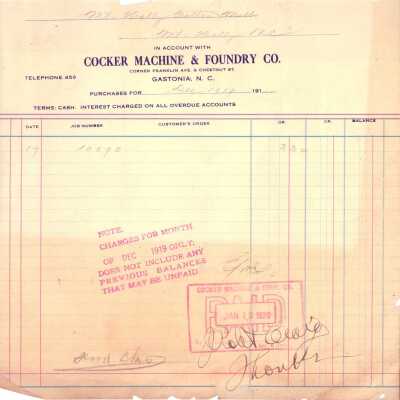 Mt. Holly Cotton Mills
Mt. Holly N.C.
IN ACCOUNT WITH
COCKER MACHINE & FOUNDRY CO.
CORNER FRANKLIN AVE. & CHESTNUT ST.
TELEPHONE 459
GASTONIA, N. C.
PURCHASES FOR Dec 1919 191
TERMS: CASH. INTEREST CHARGED ON ALL OVERDUE ACCOUNTS
DATE JOB NUMBER CUSTOMER'S ORDER DR. CR. BALANCE
NOTE.
CHARGES FOR MONTH
OF DEC 1919 ONLY:
DOES NOT INCLUDE ANY
PREVIOUS BALANCES
THAT MAY BE UNPAID
COCKER MACHINE & FDRY. CO.
PAID
JAN 1920